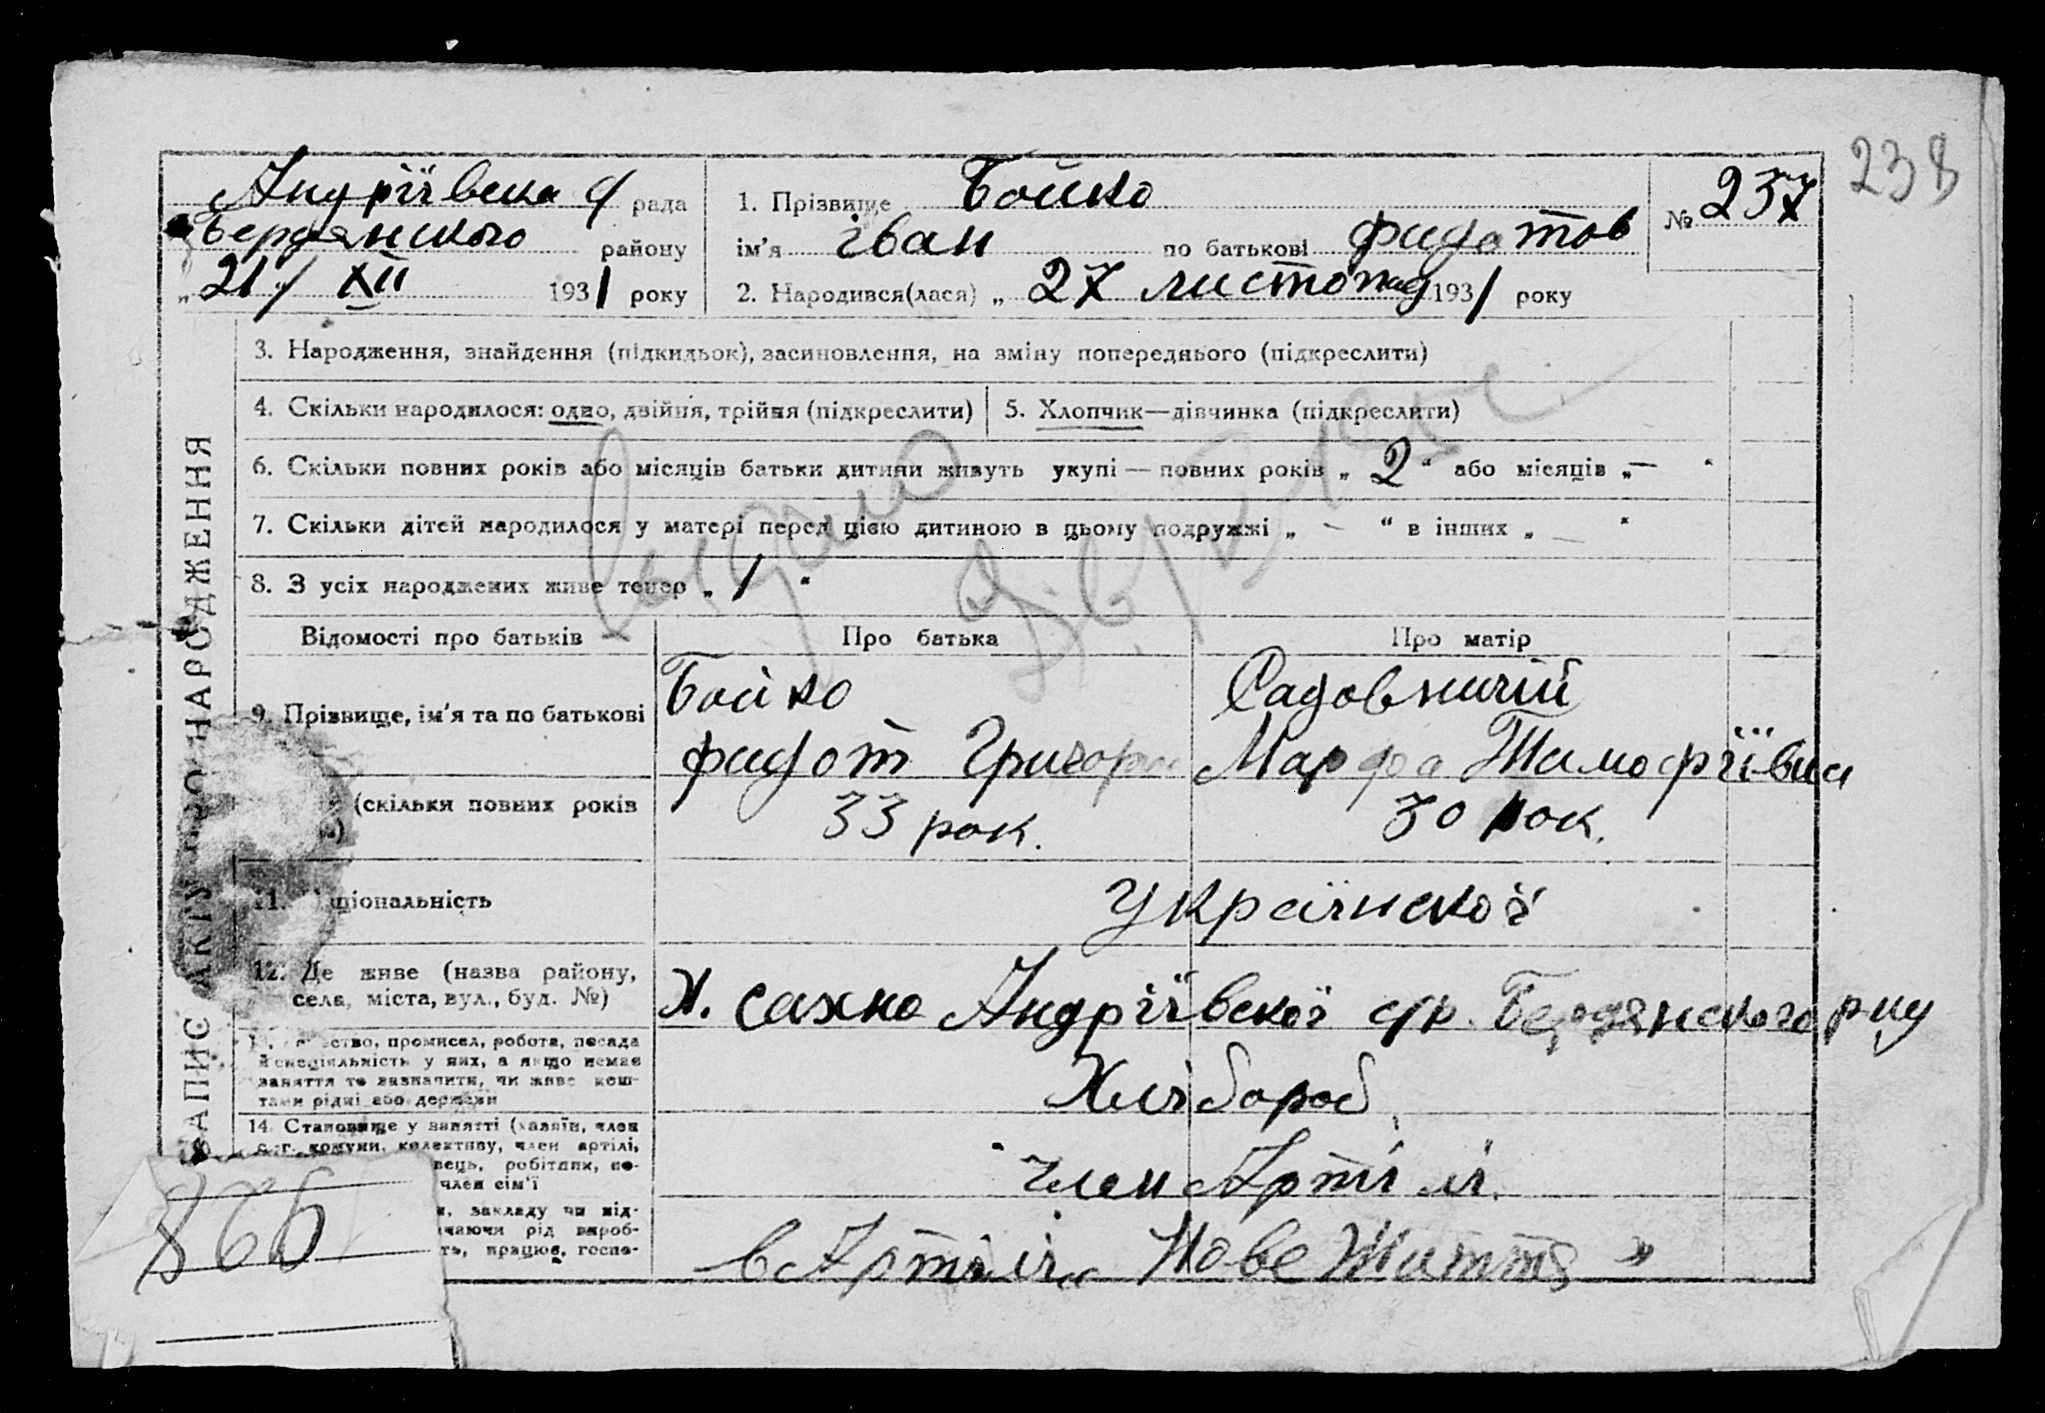 238
Андріївска с/ рада
Бердянского району
„21/ XII 1931 року
1. Прізвище Бойко
ім'я іван по батькові фидотов
2. Народився(лася) „ 27 листопад 1931 року
№ 237
ЗАПИС АКТУ ПРО НАРОДЖЕННЯ
3. Народження, знайдення (підкидьок), засиновлення, на зміну попереднього (підкреслити)
4. Скільки народилося: одно, двійня, трійня (підкреслити)
5. Хлопчик—дівчинка (підкреслити)
6. Скільки повних років або місяців батьки дитини живуть укупі — повних років „ 2 “ або місяців „—“
7. Скільки дітей народилося у матері перед цією дитиною в цьому подружжі „ — “ в інших „ — “
8. З усіх народжених живе тепер „ 1 “
Відомості про батьків Про батька Про матір
9. Прізвище, ім'я та по батькові
Бойко
фидот Григор
Садовничій
Марфа Тимофіївна
(скільки повних років
33 рок. 30 рок.
11. ціональність
Українскої
12. Де живе (назва району,
села, міста, вул., буд. №)
Х. сахно Андріївскої с/р. Бердянского рну
ство, промисел, робота, посада
й спеціяльність у них, а якщо немає
заняття то зазначити, чи живе кош-
тами рідні або держави
Хлібороб
14. Становище у занятті (хазяїн, член
с.-г. комуни, колективу, член артілі,
вець, робітник, по-
член сім'ї
член Артілі.
и, закладу чи під-
чаючи рід вироб-
ть, працює, госпо-
в Артілі „ Нове Життя "
866